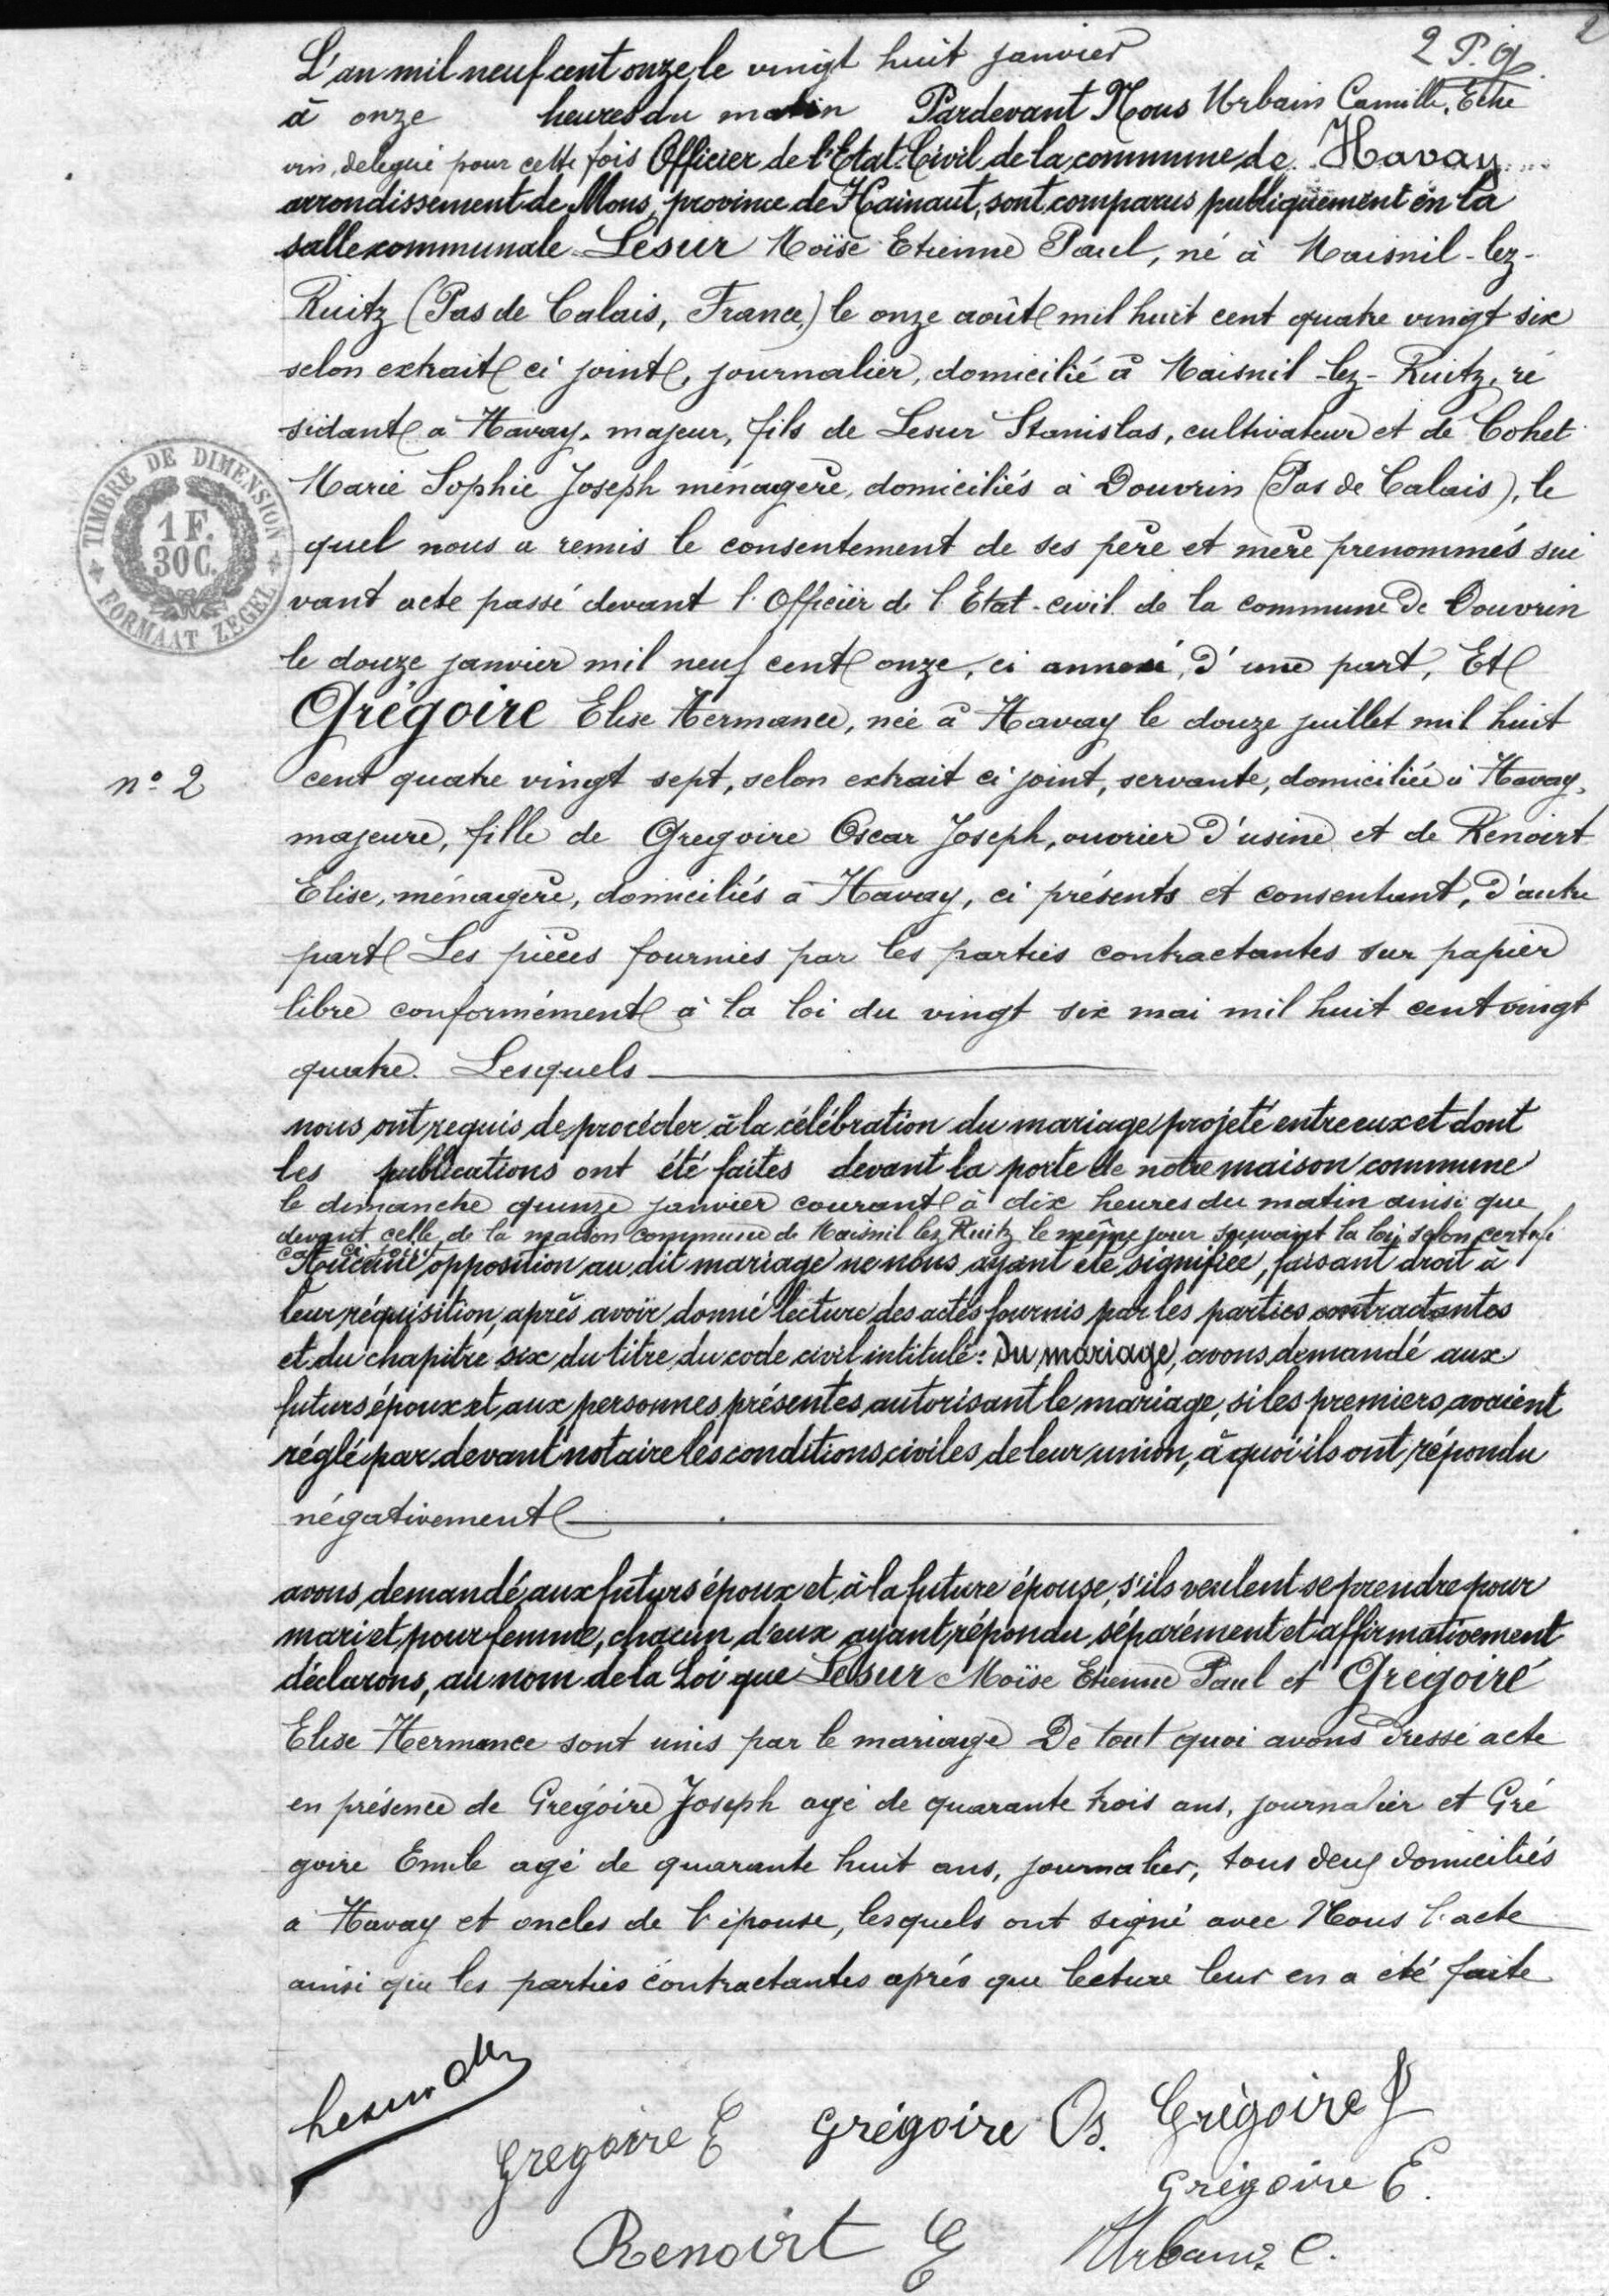 2
2 P.g.
L'an mil neuf cent onze, le vingt huit janvier
à onze heures du matin Pardevant Nous Urbain Camille, Eche
vin, delegué pour cette fois Officier de l'Etat-Civil de la commune de Havay
arrondissement de Mons, province de Hainaut, sont comparus publiquement en la
salle communale Lesur Moïse Etienne Paul, né à Maisnil-lez-
Ruitz (Pas de Calais, France,) le onze août mil huit cent quatre vingt six
selon extrait ci joint, journalier, domicilié à Maisnil-lez-Ruitz, ré
sidant a Havay, majeur, fils de Lesur Stanislas, cultivateur et de Cohet
Marie Sophie Joseph ménagère, domiciliés à Douvrin (Pas de Calais), le
quel nous a remis le consentement de ses père et mère prenommés sui
vant acte passé devant l'Officier de l'Etat-civil de la commune de Douvrin
le douze janvier mil neuf cent onze, ci annexé, d'une part, Et
Grégoire Elise Hermance, née à Havay le douze juillet mil huit
n° 2
cent quatre vingt sept, selon extrait ci joint, servante, domiciliée à Havay,
majeure, fille de Gregoire Oscar Joseph, ouvrier d'usine et de Renoirt
Elise, ménagère, domiciliés à Havay, ci présents et consentant, d'autre
part Les pièces fournies par les parties contractantes sur papier
libre conformément à la loi du vingt six mai mil huit cent vingt
quatre. Lesquels
nous ont requis de procéder à la célébration du mariage projeté entre eux et dont
les publications ont été faites devant la porte de notre maison commune
le dimanche quinze janvier courant à dix heures du matin ainsi que
devant celle de la maison commune de Maisnil lez Ruitz le même jour suivant la loi selon certifi
cat ci joint
Aucune opposition au dit mariage ne nous ayant été signifiée, faisant droit à
leur réquisition, après avoir donné lecture des actes fournis par les parties contractantes
et du chapitre six du titre du code civil intitulé: Du mariage, avons demandé aux
futurs époux et aux personnes présentes autorisant le mariage, si les premiers avaient
réglé par devant notaire les conditions civiles de leur union, à quoi ils ont répondu
négativement
avons demandé aux futurs époux et à la future épouse, s'ils veulent se prendre pour
mari et pour femme, chacun d'eux ayant répondu séparément et affirmativement
déclarons, au nom de la Loi que Lesur Moïse Etienne Paul et Grégoire
Elise Hermance sont unis par le mariage De tout quoi avons dressé acte
en présence de Grégoire Joseph agé de quarante trois ans, journalier et Gré
goire Emile agé de quarante huit ans, journalier, tous deux domiciliés
a Havay et oncles de l'épouse, lesquels ont signé avec Nous l'acte
ainsi que les parties contractantes aprés que lecture leur en a été faite
Lesur
Gregoire E Grégoire Os. Grégoire J
Grégoire E.
Renoirt E Urbain C.
TIMBRE DE DIMENSION
1 F.
30 C.
FORMAAT ZEGEL